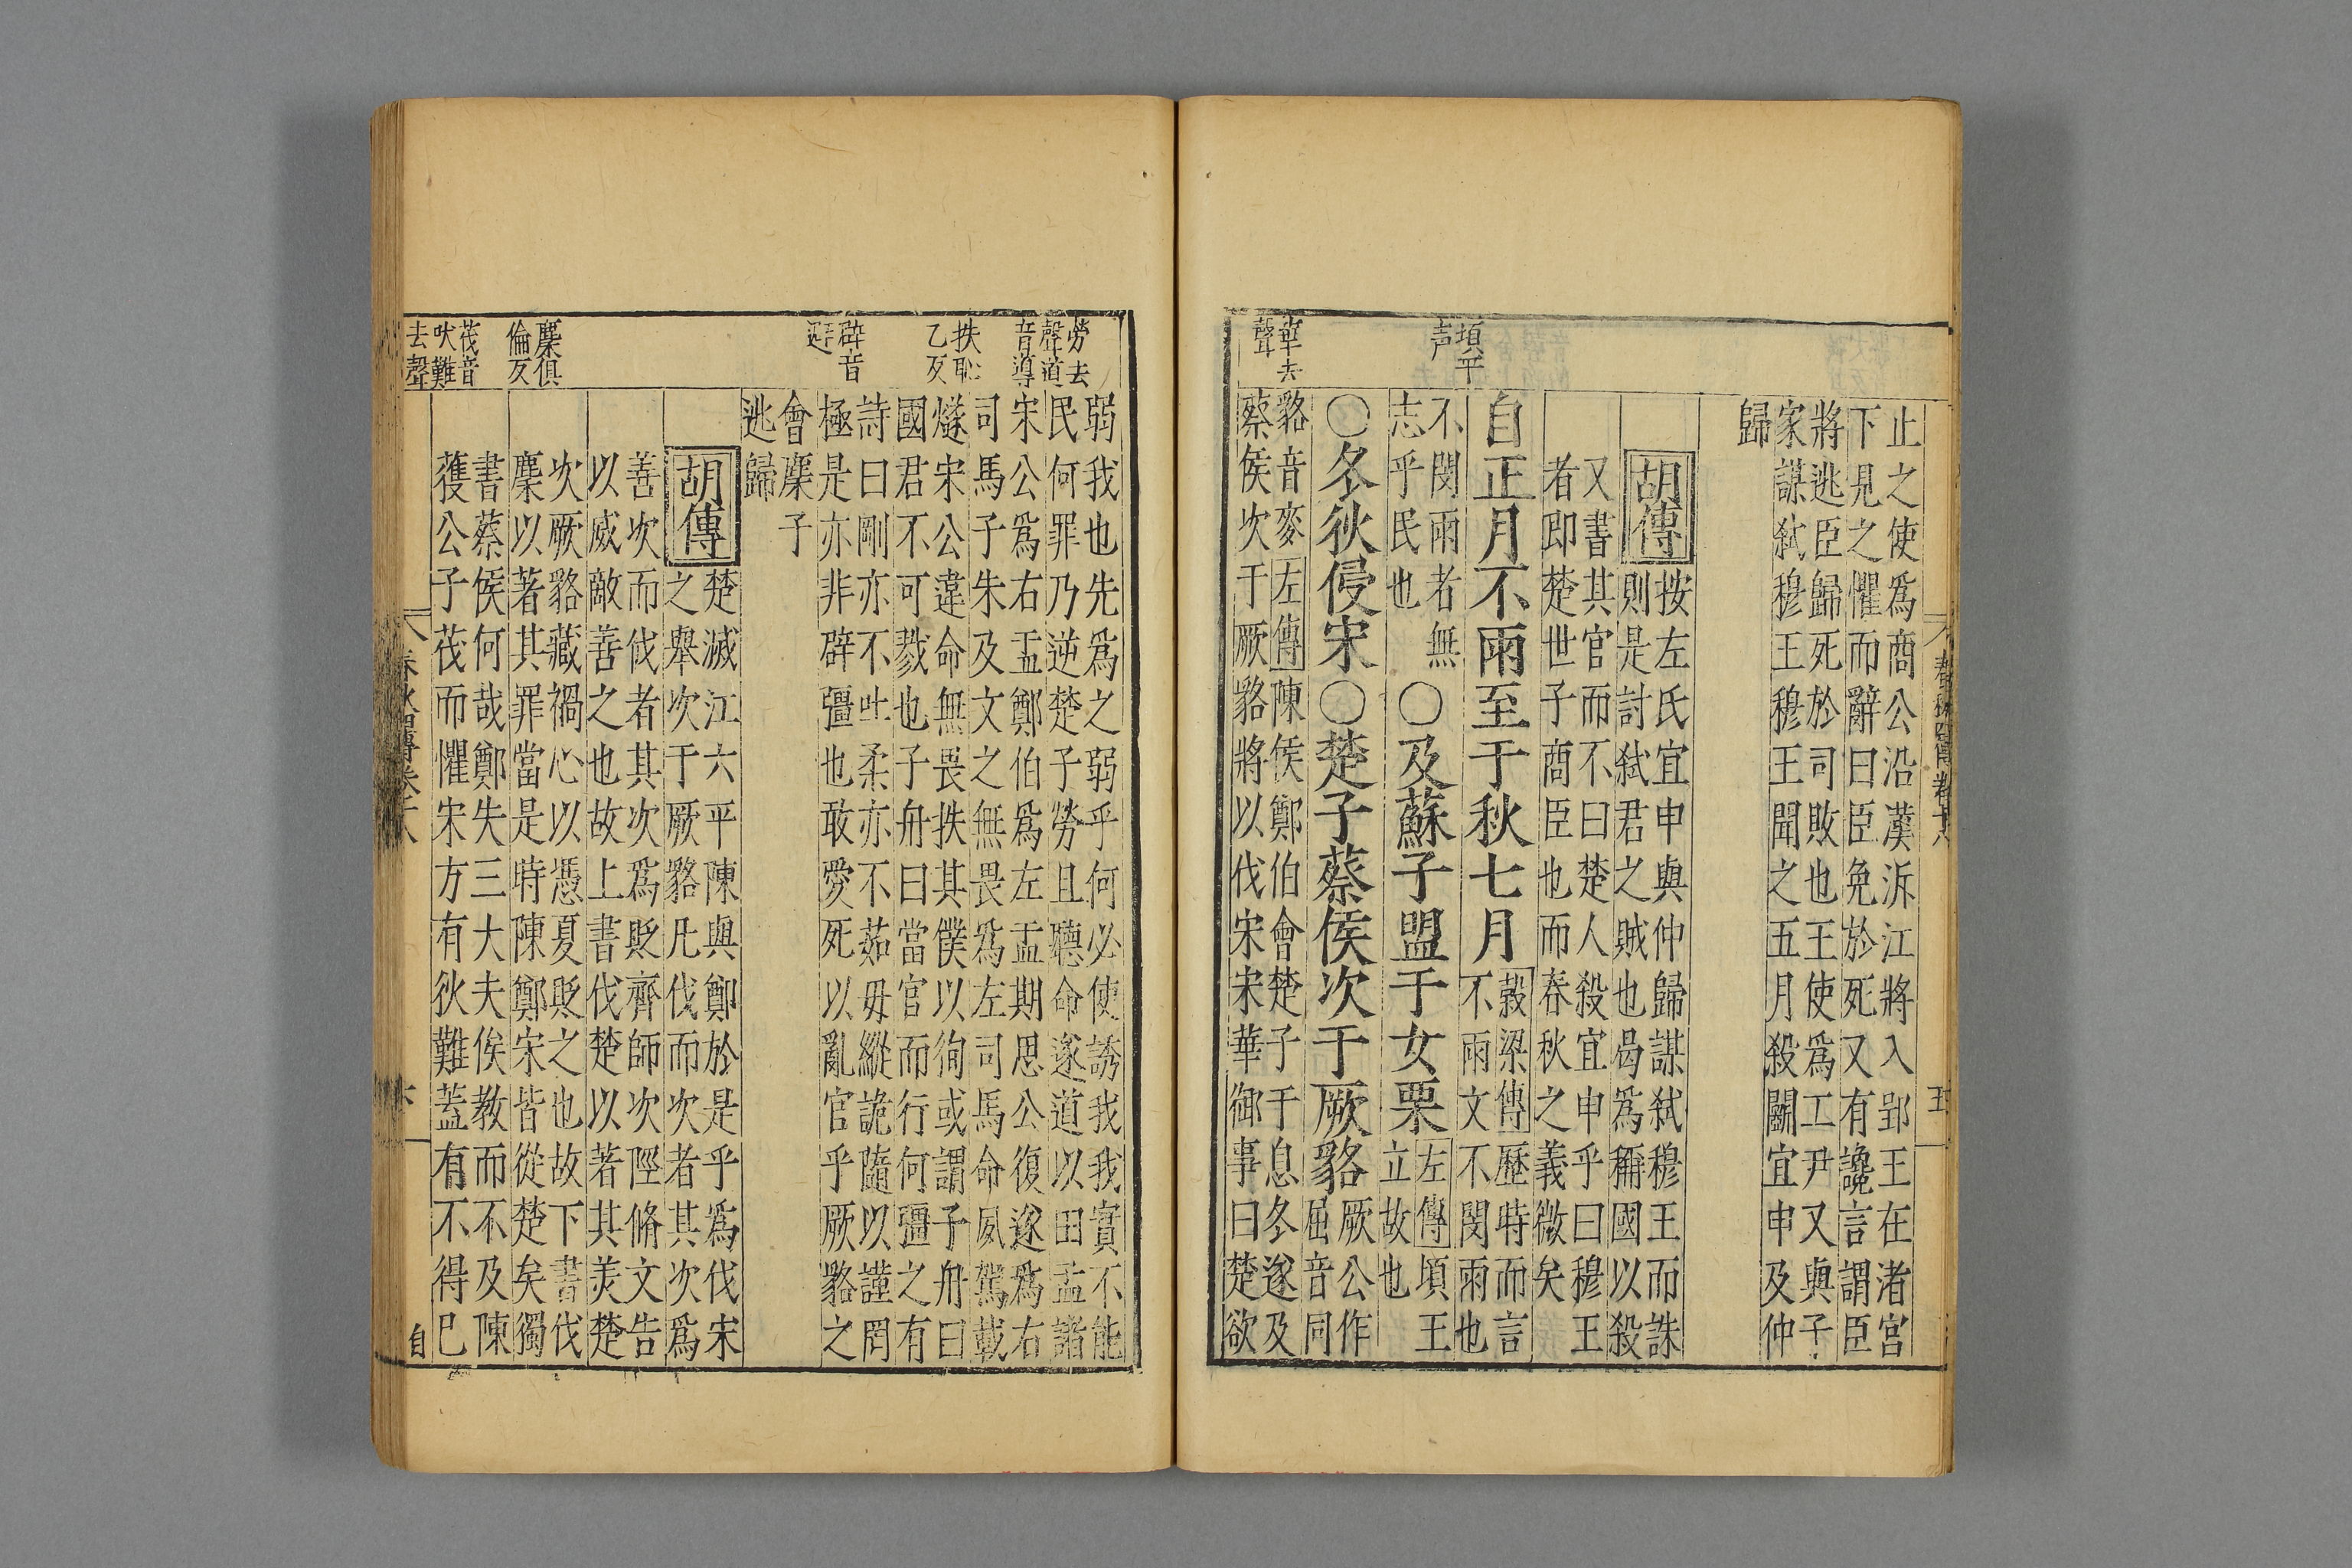 止之使爲商公沿漢泝江將入郢王在渚宮
下見之懼而辭曰臣免於死又有讒言謂臣
將逃臣歸死於司敗也王使爲工尹又與子
家謀弒穆王穆王聞之五月殺鬬宜申及仲
歸
胡傳
按左氏宜申與仲歸謀弒穆王而誅
則是討弒君之賊也曷爲稱國以殺
又書其官而不曰楚人殺宜申乎曰穆王
者即楚世子商臣也而春秋之義微矣
自正月不雨至于秋七月
穀梁傳歷時而言
不雨文不閔雨也
不閔雨者無
志乎民也
○及蘇子盟于女栗
左傳頃王
立故也
○冬狄侵宋○楚子蔡侯次于厥貉
厥公作
屈音同
貉音麥左傳陳侯鄭伯會楚子于息冬遂及
蔡侯次于厥貉將以伐宋宋華御事曰楚欲
頃平
声
華去
聲
春秋四傳卷十八
五
弱我也先爲之弱乎何必使誘我我實不能
民何罪乃逆楚子勞且聽命遂道以田孟諸
宋公爲右盂鄭伯爲左盂期思公復遂爲右
司馬子朱及文之無畏爲左司馬命夙駕載
燧宋公違命無畏抶其僕以徇或謂子舟曰
國君不可戮也子舟曰當官而行何彊之有
詩曰剛亦不吐柔亦不茹毋縱詭隨以謹罔
極是亦非辟彊也敢愛死以亂官乎厥貉之
會麇子
逃歸
胡傳
楚滅江六平陳與鄭於是乎爲伐宋
之舉次于厥貉凡伐而次者其次爲
善次而伐者其次爲貶齊師次陘脩文告
以威敵善之也故上書伐楚以著其羨楚
次厥貉藏禍心以憑夏貶之也故下書伐
麇以著其罪當是時陳鄭宋皆從楚矣獨
書蔡侯何哉鄭失三大夫俟救而不及陳
獲公子茷而懼宋方有狄難蓋有不得巳
勞去
聲道
音導
抶恥
乙反
辟音
避
麇俱
倫反
茷音
吠難
去聲
自